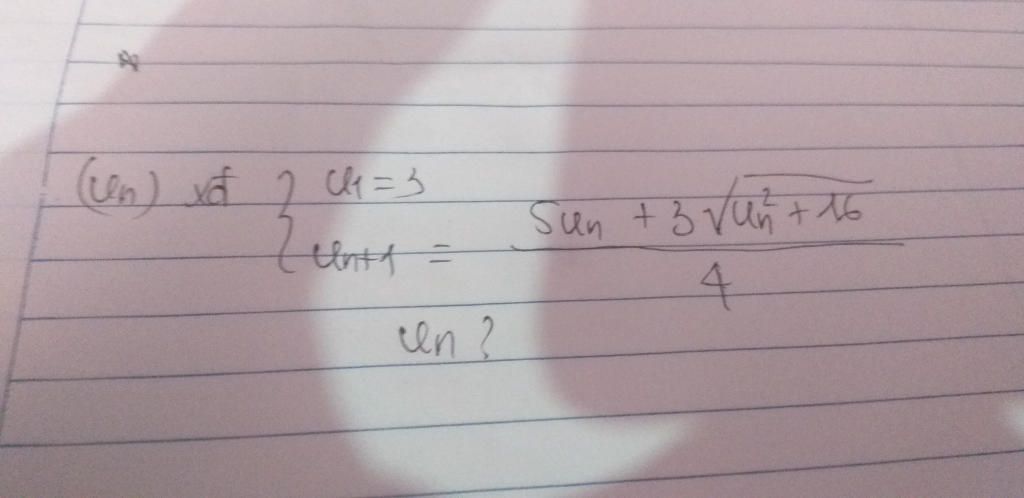 (un) xđ { u1 = 3
un+1 = (5un + 3√(un² + 16)) / 4
un ?